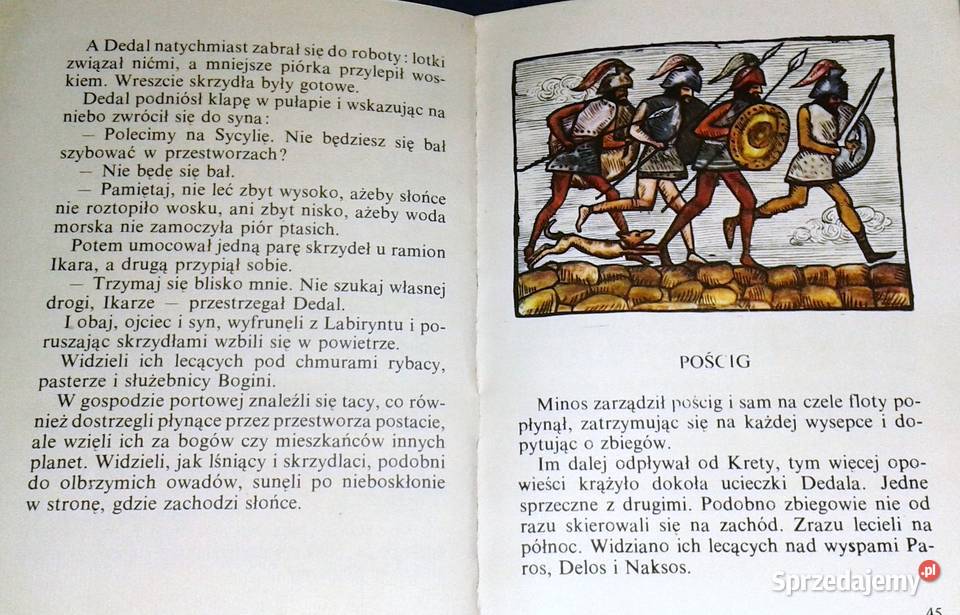 A Dedal natychmiast zabrał się do roboty: lotki
związał nićmi, a mniejsze piórka przylepił wos-
kiem. Wreszcie skrzydła były gotowe.
Dedal podniósł klapę w pułapie i wskazując na
niebo zwrócił się do syna:
— Polecimy na Sycylię. Nie będziesz się bał
szybować w przestworzach?
— Nie będę się bał.
— Pamiętaj, nie leć zbyt wysoko, ażeby słońce
nie roztopiło wosku, ani zbyt nisko, ażeby woda
morska nie zamoczyła piór ptasich.
Potem umocował jedną parę skrzydeł u ramion
Ikara, a drugą przypiął sobie.
— Trzymaj się blisko mnie. Nie szukaj własnej
drogi, Ikarze — przestrzegał Dedal.
I obaj, ojciec i syn, wyfrunęli z Labiryntu i po-
ruszając skrzydłami wzbili się w powietrze.
Widzieli ich lecących pod chmurami rybacy,
pasterze i służebnicy Bogini.
W gospodzie portowej znaleźli się tacy, co rów-
nież dostrzegli płynące przez przestworza postacie,
ale wzięli ich za bogów czy mieszkańców innych
planet. Widzieli, jak lśniący i skrzydlaci, podobni
do olbrzymich owadów, sunęli po nieboskłonie
w stronę, gdzie zachodzi słońce.
POŚCIG
Minos zarządził pościg i sam na czele floty po-
płynął, zatrzymując się na każdej wysepce i do-
pytując o zbiegów.
Im dalej odpływał od Krety, tym więcej opo-
wieści krążyło dokoła ucieczki Dedala. Jedne
sprzeczne z drugimi. Podobno zbiegowie nie od
razu skierowali się na zachód. Zrazu lecieli na
północ. Widziano ich lecących nad wyspami Pa-
ros, Delos i Naksos.
45
Sprzedajemy.pl